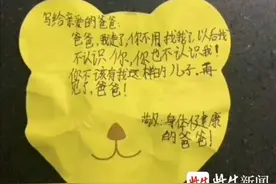 写给亲爱的爸爸:
爸爸,我走了,你不用找我了,以后我
不认识你,你也不认识我!
你不该有我这样的儿子,再
见了,爸爸!
敬:身体仅健康
的爸爸
新闻